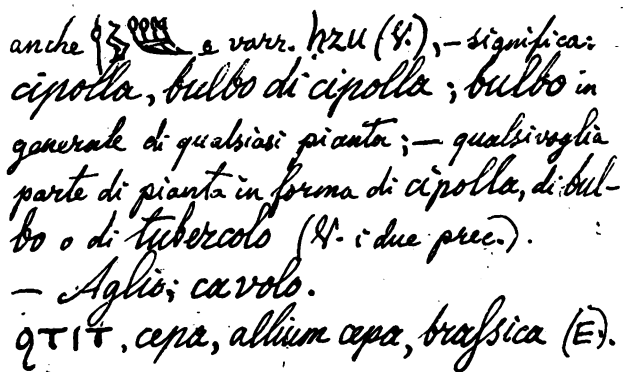 anche e varr. hzu (V.), – significa:
cipolla, bulbo di cipolla; bulbo in
generale di qualsiasi pianta; – qualsivoglia
parte di pianta in forma di cipolla, di bul-
bo o di tubercolo (V. i due prec.).
– Aglio; cavolo.
ϩⲧⲓⲧ, cepa, allium cepa, braſsica (E).